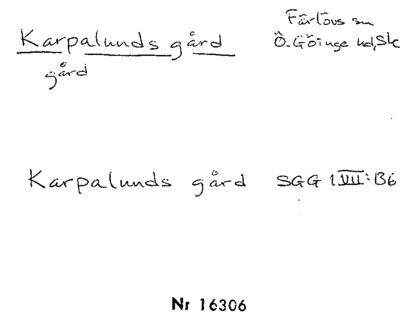 Karpalunds gård
Färlövs sn
Ö. Göinge hd, Sk
gård
Karpalunds gård SGG 1 VII:B6
Nr 16306